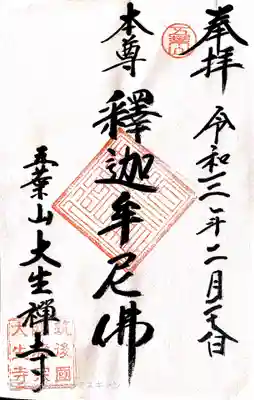 奉拝
令和三年二月
本尊
釋迦牟尼佛
五葉山大生禪寺
筑後國
大生寺